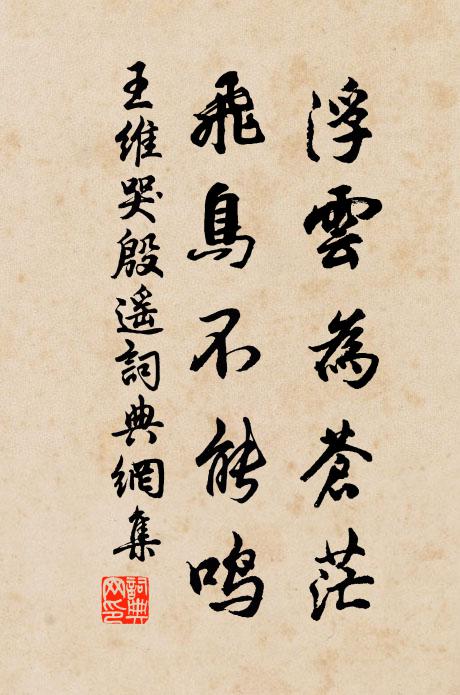 浮雲為蒼茫
飛鳥不能鳴
王維哭殷遥詞典網集
詞典網印